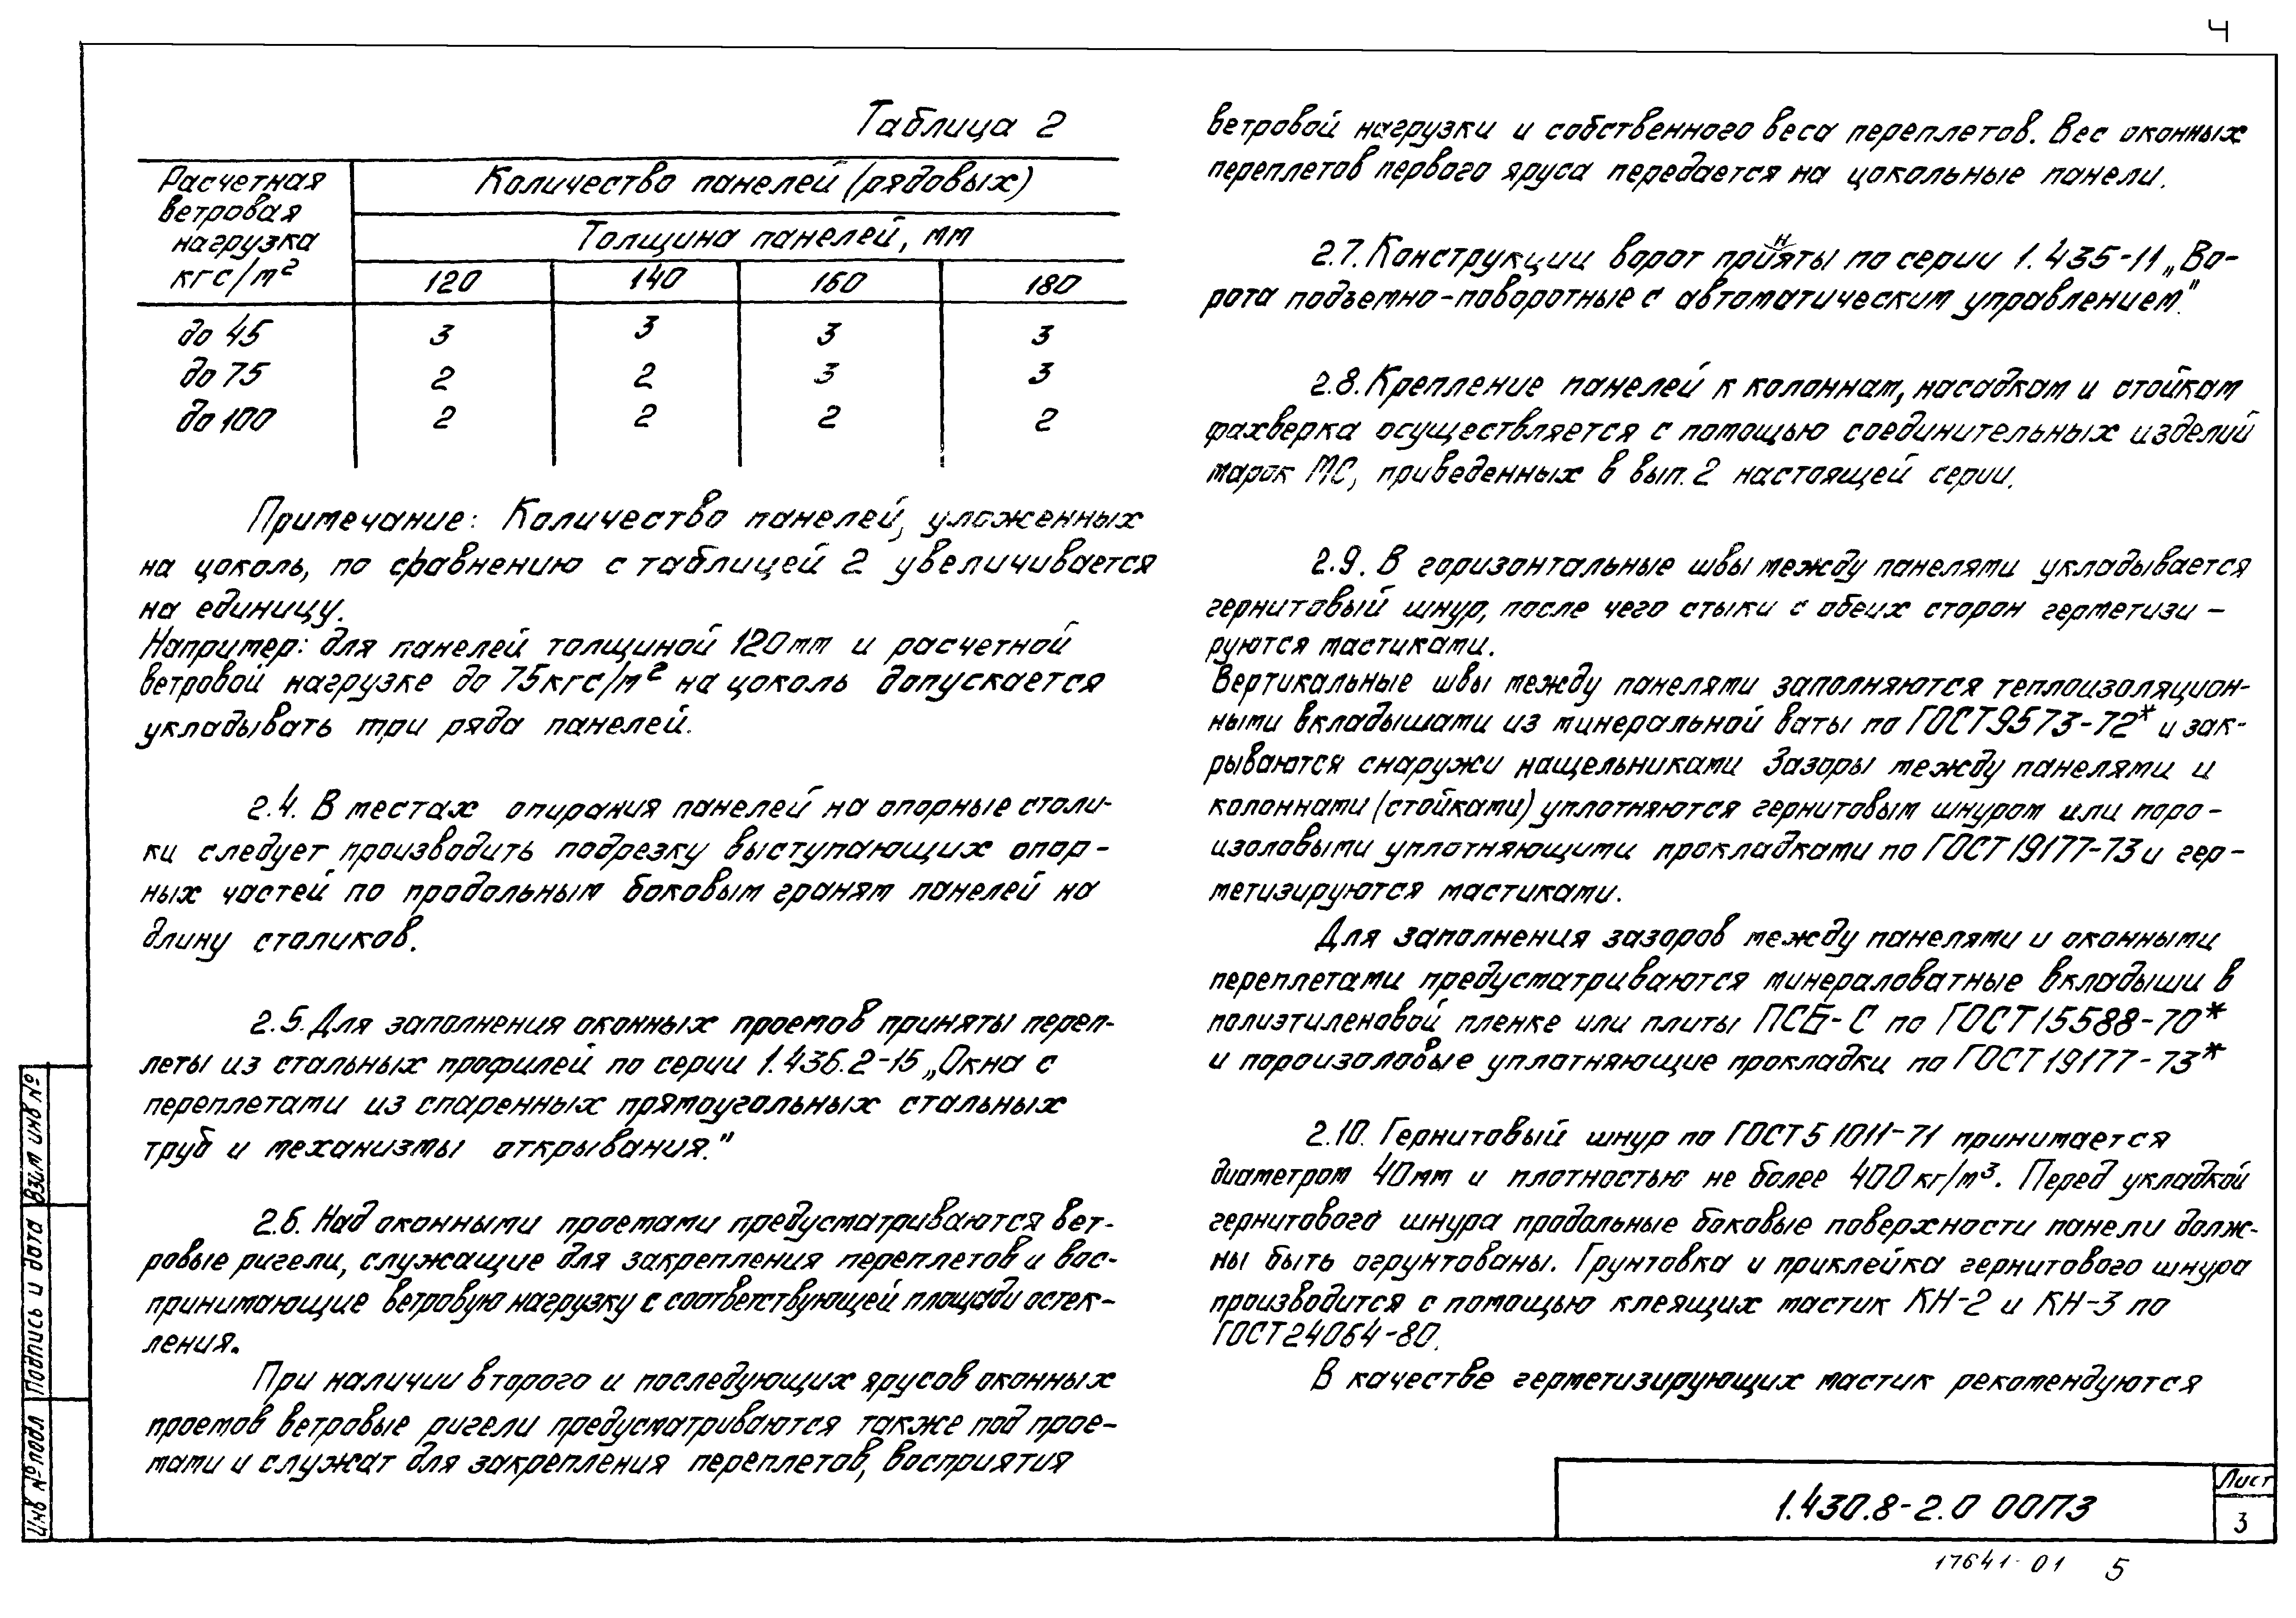 4
Таблица 2
Расчетная
ветровая
нагрузка
кгс/м²
Количество панелей (рядовых)
Толщина панелей, мм
120 140 160 180
до 45 3 3 3 3
до 75 2 2 3 3
до 100 2 2 2 2
Примечание: Количество панелей, уложенных
на цоколь, по сравнению с таблицей 2 увеличивается
на единицу.
Например: для панелей толщиной 120мм и расчетной
ветровой нагрузке до 75кгс/м² на цоколь допускается
укладывать три ряда панелей.
2.4. В местах опирания панелей на опорные столи-
ки следует производить подрезку выступающих опор-
ных частей по продольным боковым граням панелей на
длину столиков.
2.5. Для заполнения оконных проемов приняты переп-
леты из стальных профилей по серии 1.436.2-15 „Окна с
переплетами из спаренных прямоугольных стальных
труб и механизмы открывания."
2.6. Над оконными проемами предусматриваются вет-
ровые ригели, служащие для закрепления переплетов и вос-
принимающие ветровую нагрузку с соответствующей площади остек-
ления.
При наличии второго и последующих ярусов оконных
проемов ветровые ригели предусматриваются также под прое-
мами и служат для закрепления переплетов, восприятия
ветровой нагрузки и собственного веса переплетов. Вес оконных
переплетов первого яруса передается на цокольные панели.
2.7. Конструкции ворот приняты по серии 1.435-11 „Во-
рота подъемно-поворотные с автоматическим управлением."
2.8. Крепление панелей к колоннам, насадкам и стойкам
фахверка осуществляется с помощью соединительных изделий
марок МС, приведенных в вып. 2 настоящей серии.
2.9. В горизонтальные швы между панелями укладывается
гернитовый шнур, после чего стыки с обеих сторон герметизи-
руются мастиками.
Вертикальные швы между панелями заполняются теплоизоляцион-
ными вкладышами из минеральной ваты по ГОСТ 9573-72* и зак-
рываются снаружи нащельниками Зазоры между панелями и
колоннами (стойками) уплотняются гернитовым шнуром или поро-
изоловыми уплотняющими прокладками по ГОСТ 19177-73 и гер-
метизируются мастиками.
Для заполнения зазоров между панелями и оконными
переплетами предусматриваются минераловатные вкладыши в
полиэтиленовой пленке или плиты ПСБ-С по ГОСТ 15588-70*
и пороизоловые уплотняющие прокладки по ГОСТ 19177-73*
2.10. Гернитовый шнур по ГОСТ 5 1011-71 принимается
диаметром 40мм и плотностью не более 400 кг/м³. Перед укладкой
гернитового шнура продольные боковые поверхности панели долж-
ны быть огрунтованы. Грунтовка и приклейка гернитового шнура
производится с помощью клеящих мастик КН-2 и КН-3 по
ГОСТ 24064-80.
В качестве герметизирующих мастик рекомендуются
Взам инв №
Подпись и дата
Инв № подл
1.430.8-2.0 00ПЗ
Лист
3
17641-01 5